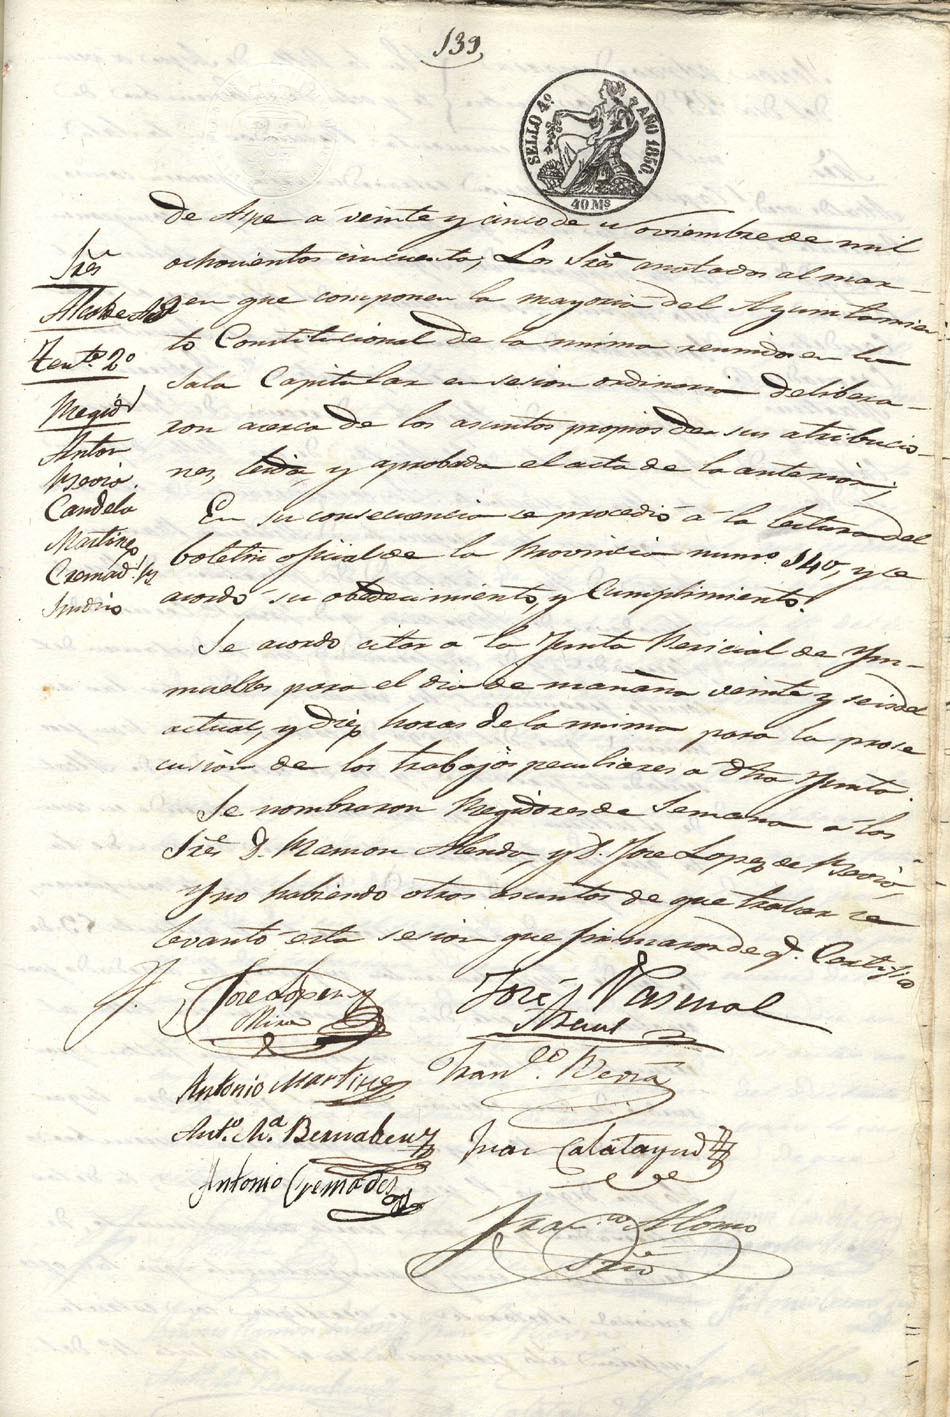 139,
SELLO 4º AÑO 1850.
40 Ms
de Aspe a veinte y cinco de Noviembre de mil
ochocientos cincuenta; Los Sres anotados al mar-
gen que componen la mayoria del Ayuntamien-
to Constitucional de la misma reunidos en la
Sala Capitular en sesion ordinaria delibera-
ron acerca de los asuntos propios de sus atribucio-
nes, leida, y aprobada el acta de la anterior;
En su consecuencia se procedió á la lectura del
boletin oficial de la Provincia numº 140, y se
acordó su obedecimiento, y Cumplimiento.
Se acordo citar á la Junta Pericial de Ym-
muebles para el dia de mañana veinte y seis del
actual, y diez horas de la misma para la prose
cusion de los trabajos peculiares a dha Junta.
Se nombraron Regidores de Semana á los
Sres D. Ramon, y D. Jose Lopez de
Y no habiendo otros asuntos de que tratar se
levantó esta sesion que firmaron de q. Certifico
Sres
Alcalde
Tente 2º
Regid
Anton
Candela
Martinez
Cremad.
José Lopez y
Mira
José Pascual
Antonio Martinez
Franco
Anto Ma Bernabeu
Juan Calatayud
Antonio Cremades
Franco Alonso
Srio